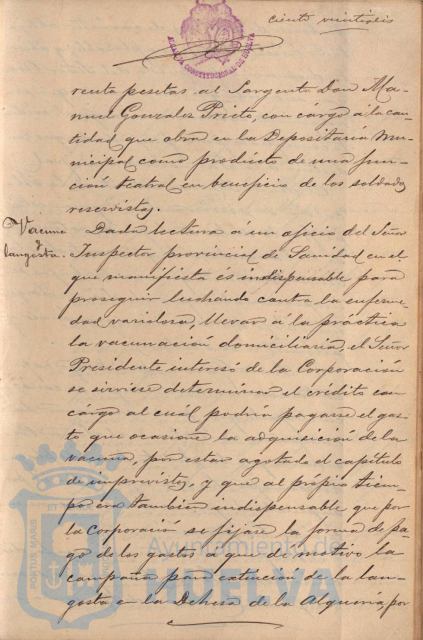 ciento veintiseis
ALCALDIA CONSTITUCIONAL DE HUELVA
renta pesetas al Sargento Don Ma-
nuel Gonzalez Prieto, con cárgo á la can-
tidad que obra en la Depositaría Mu-
nicipal como producto de una fun-
ción teatral en beneficio de los soldados
reservistas.
Vacuna
y
langosta.
Dada lectura á un oficio del Señor
Inspector provincial de Sanidad en el
que manifiesta és indispensable para
proseguir luchando contra la enferme-
dad variolosa, llevar á la práctica
la vacunación domiciliaria, el Señor
Presidente interesó de la Corporación
se sirviese determinar el crédito con
cárgo al cual podría pagarse el gas-
to que ocasione la adquisición de la
vacuna, por estar agotado el capítulo
de imprevistos, y que al propio tiem-
po era tambien indispensable que por
la Corporación se fijase la forma de pa-
go de los gastos a que de motivo la
campaña para extincion de la lan-
gosta en la Dehesa de la Alquería por
PORTUS MARIS
Ayuntamiento de
HUELVA